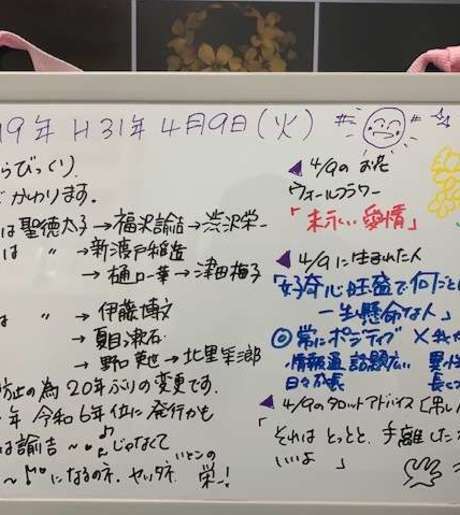 19年 H31年 4月9日(火)
らびっくり
かわります。
は 聖徳太子→福沢諭吉→渋沢栄一
は 〃 →新渡戸稲造
→樋口一葉→津田梅子
は 〃 →伊藤博文
→夏目漱石
→野口英世→北里柴三郎
防止の為 20年ぶりの変更です。
年 令和6年位に発行かも
は諭吉〜♪じゃなくて
〜♪になるのネ. ヤッダネ いとこの 栄一!
◀4/9のお花
ウォールフラワー
「末永い愛情」
◀4/9に生まれた人
「好奇心旺盛で何ごと
一生懸命な人」
◎常にポジティブ
情報通 話題広い
日々成長
◀4/9のタロットアドバイス
「それは とっとと、手離した
いいよ 」